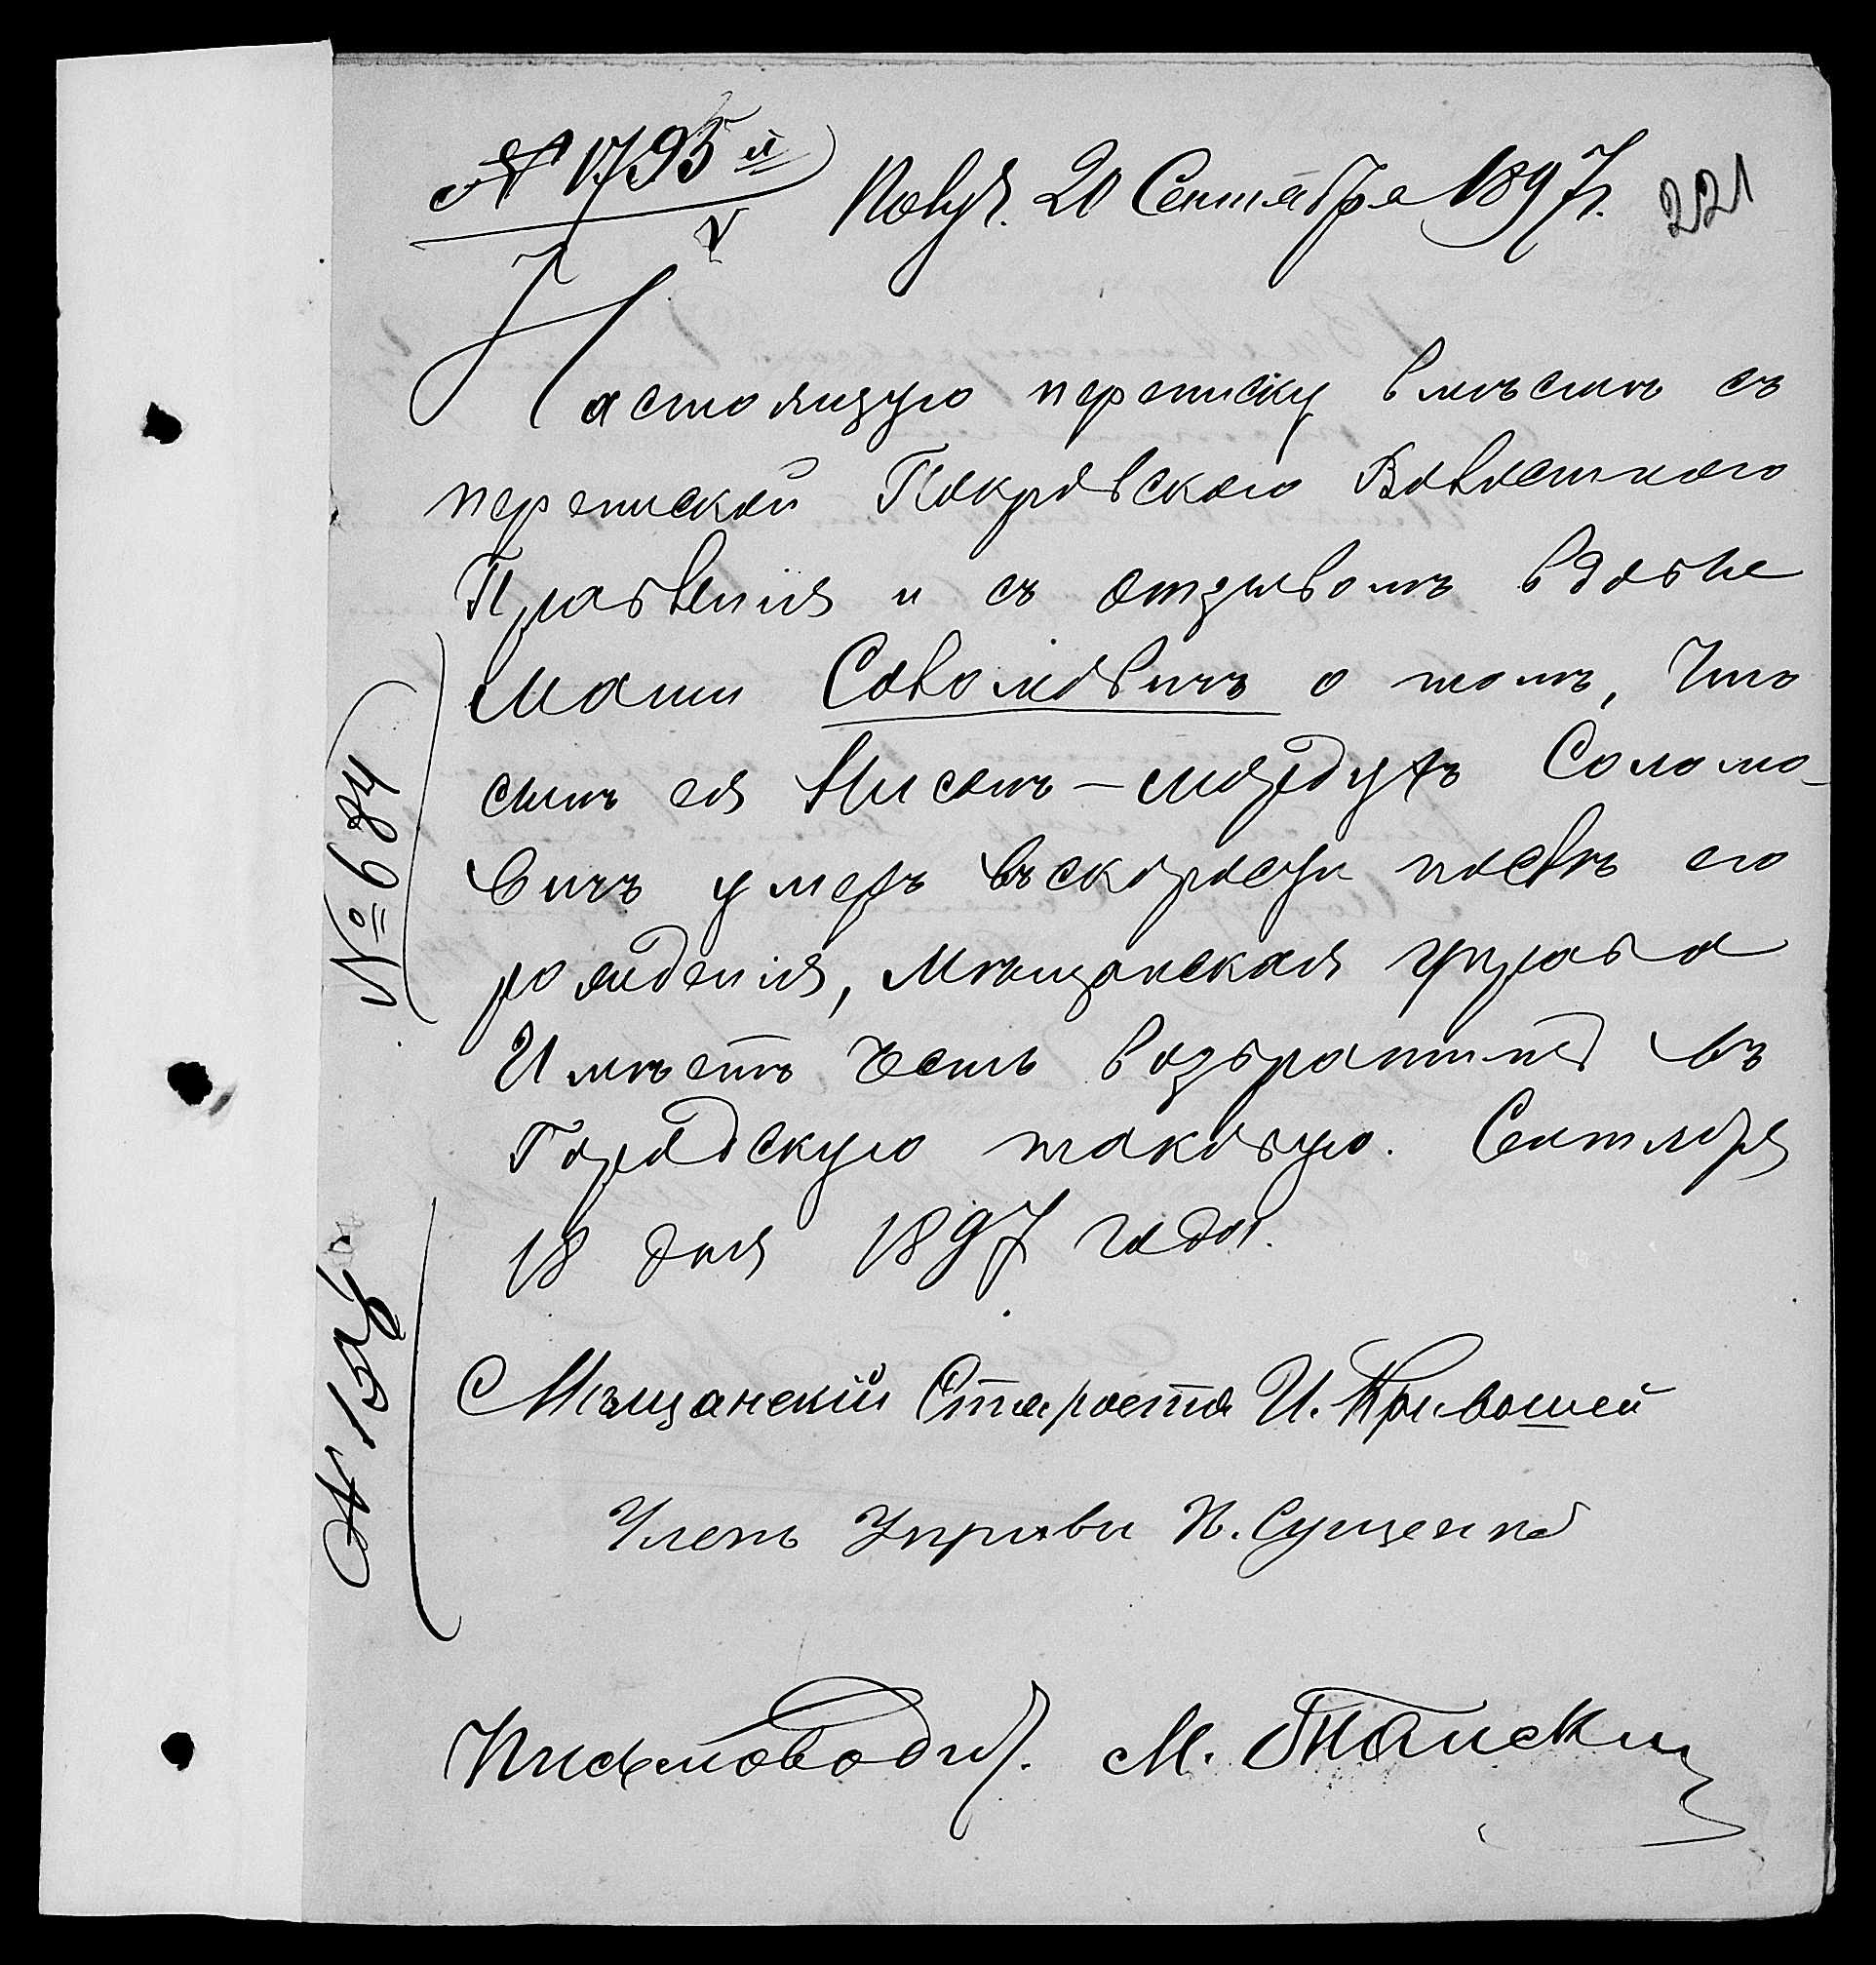 № 1795й
Получ. 20 Сентября 1897 г.
221
Настоящую переписку вместѣ съ
перепиской Покровскаго Волостного
Правленія и съ отзывомъ вдовы
Маши Соломовичъ о томъ, что
сынъ ея Нисонъ-Мордухъ Соломо-
вичъ умеръ въскорости послѣ его
рожденія, Мѣщанская управа
Имѣетъ честь возвратить въ
Городскую таковую. Сентября
18 дня 1897 года.
Мѣщанскій Староста И. Кривошей
Членъ Управы П. Сущенко
Письмоводит. М.
№ 684